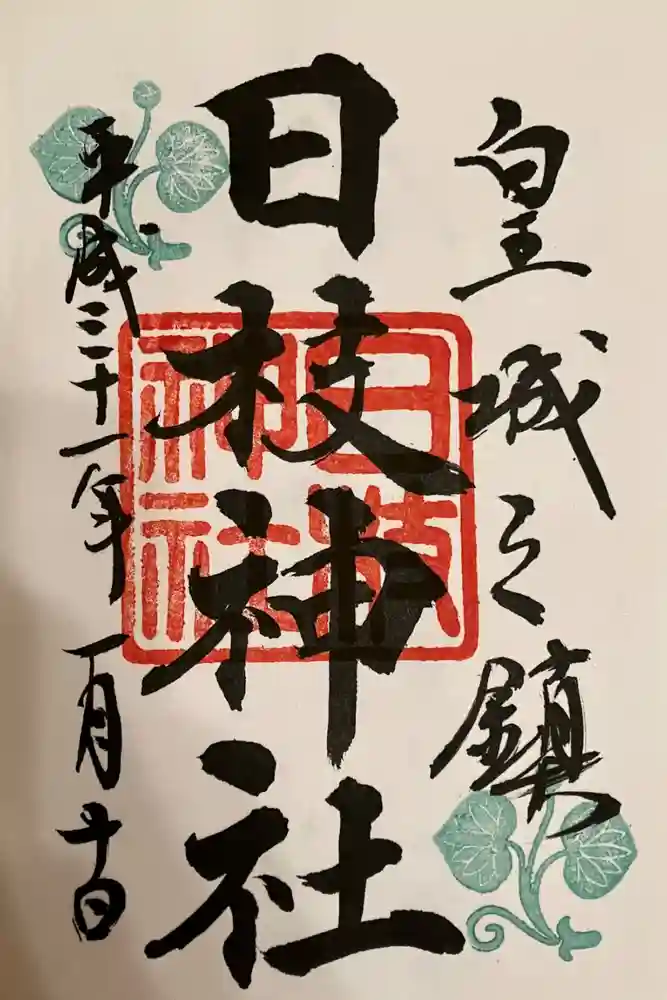 皇城之鎮
日枝神社
日枝
神社
平成三十一年一月十日